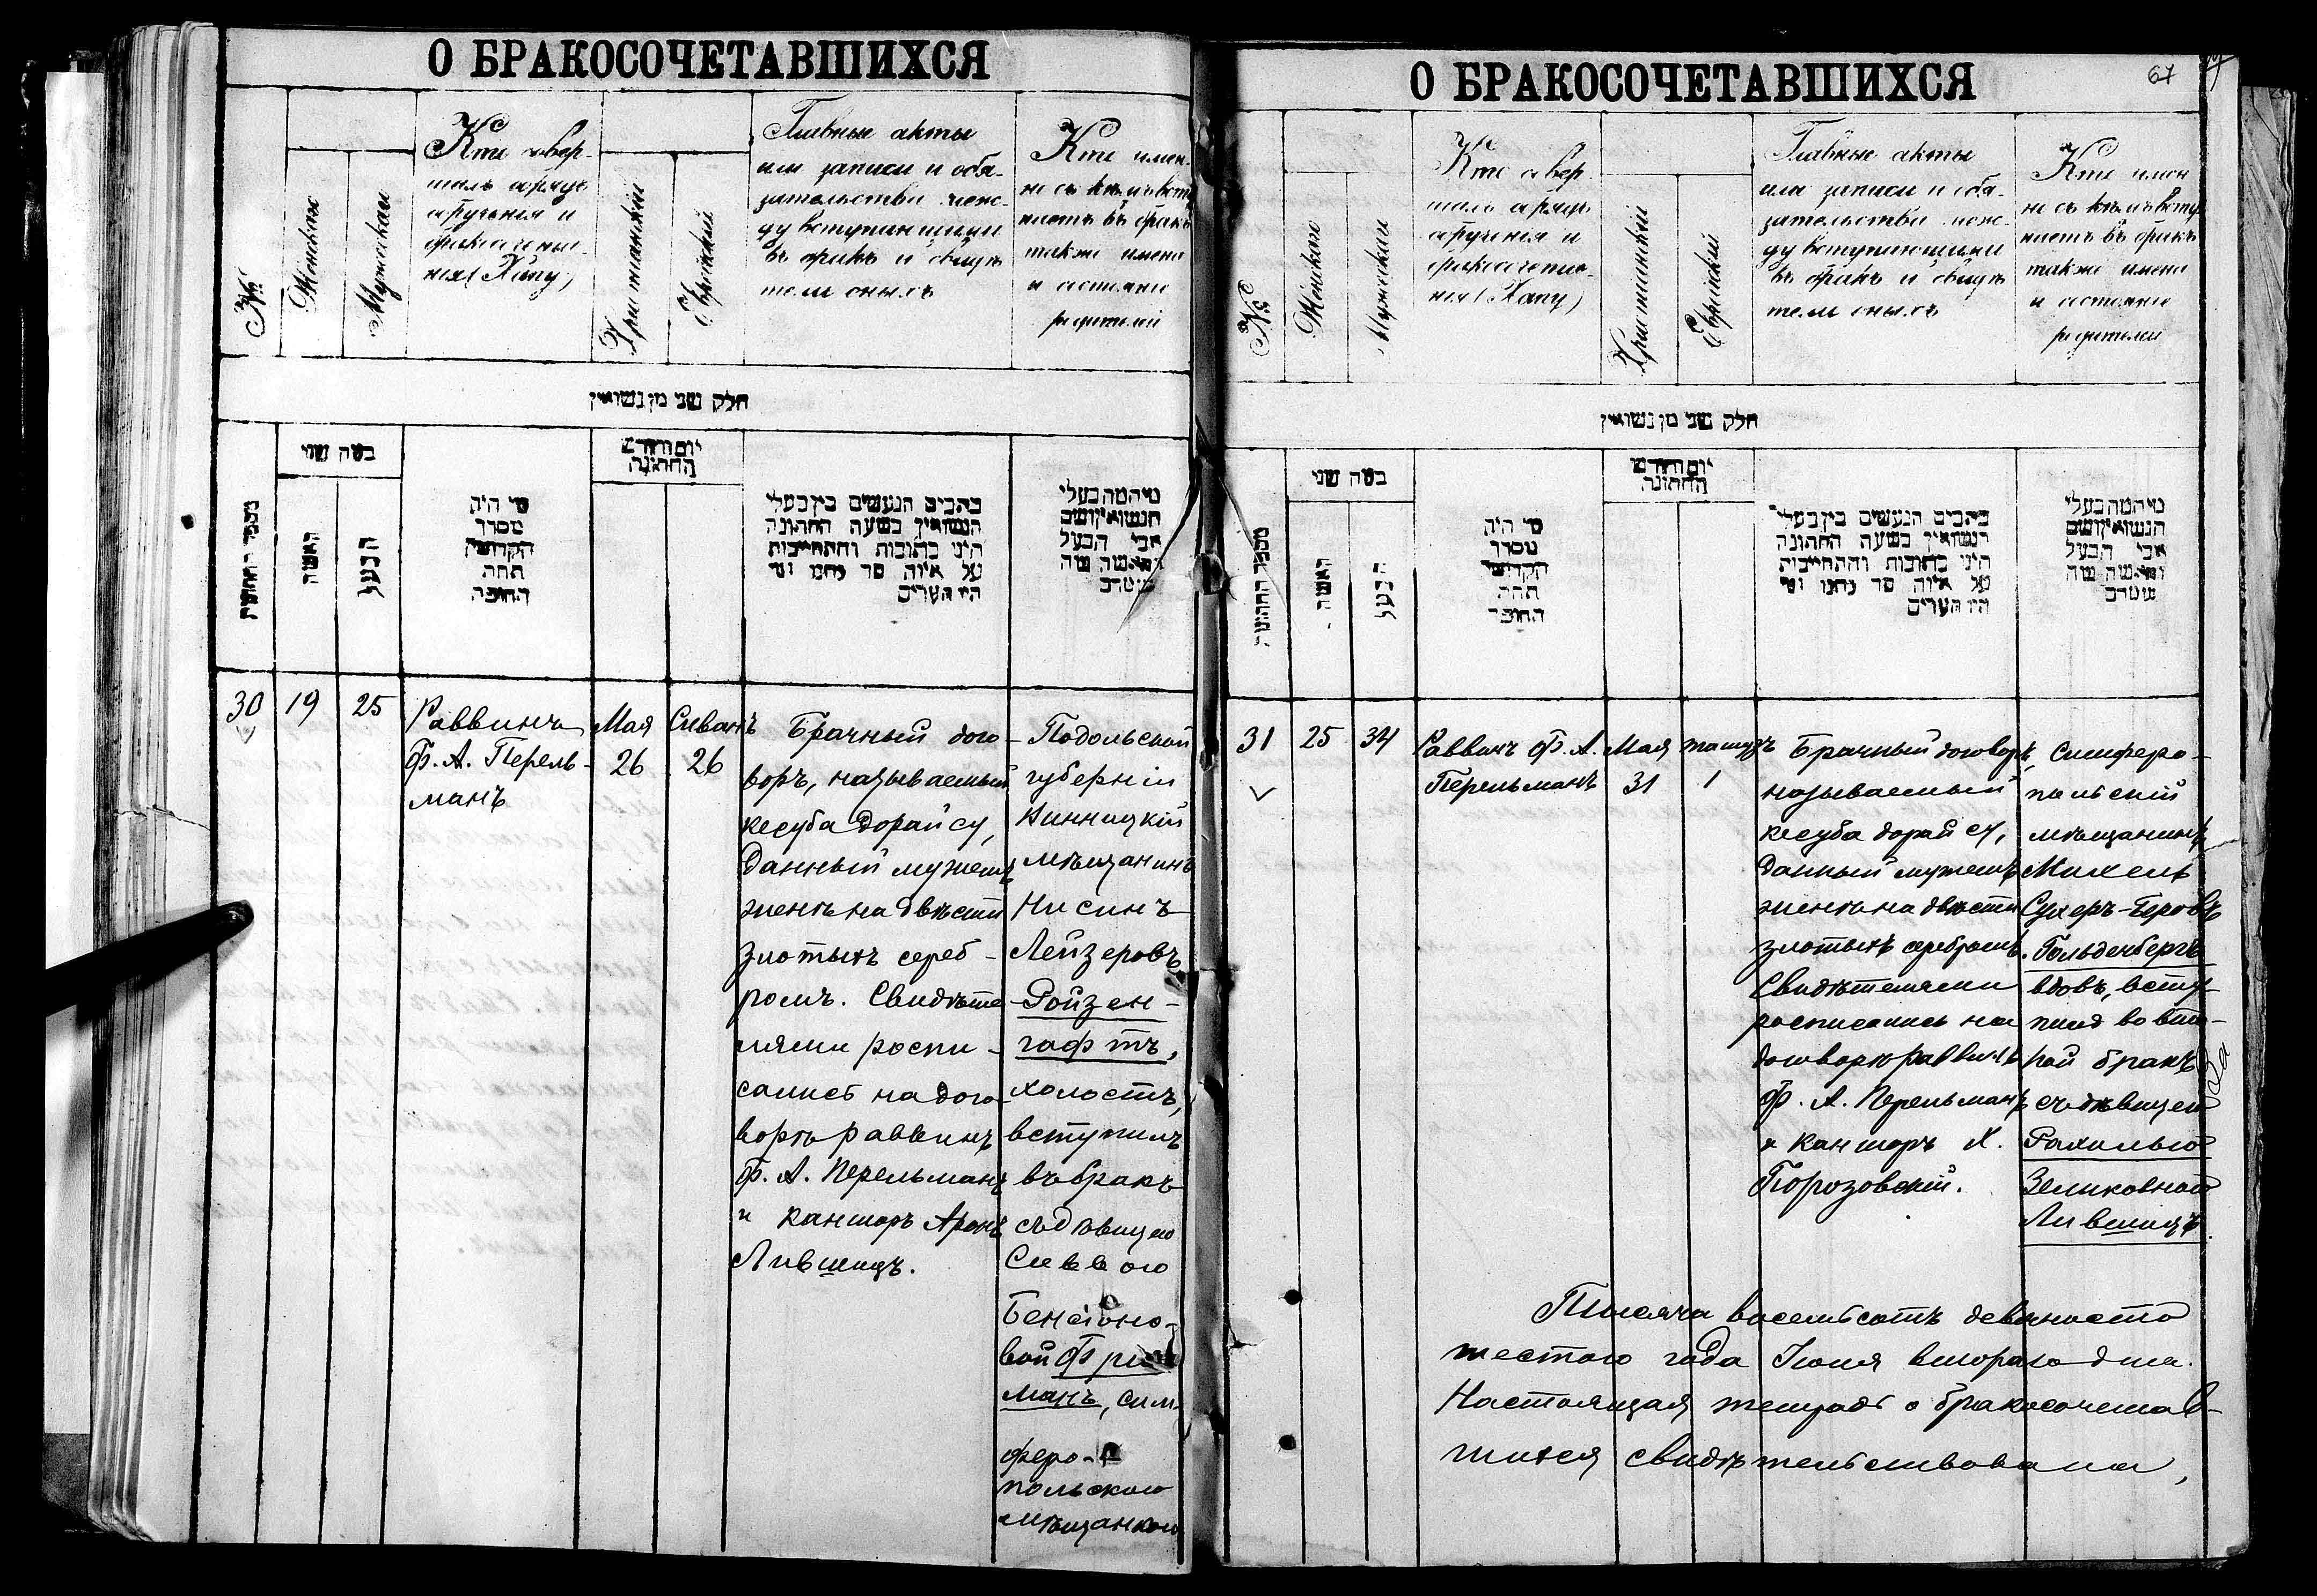 О БРАКОСОЧЕТАВШИХСЯ
№
Женская
Мужская
Кто совер-
шалъ обрядъ
обрученія и
бракосочета-
нія (Хупу)
Христіанскій
Еврейскій
Главные акты
или записи и обя-
зательства меж-
ду вступившими
въ бракъ и свидѣ
тели оныхъ
Кто имен-
но съ кѣмъ всту
паетъ въ бракъ
также имена
и состояніе
родителей
חלק שני מן נשואין
מספר החתונות
כמה שני
האשה
הבעל
מי היה
מסדר
הקדושין
תחת
החופה
יום וחודש
החתונה
כתבים הנעשים בין בעלי
הנשואין בשעה החתונה
היינו כתובות והתחייבות
על איזה סך נתנו ומי
היו העדים
30
19
25
Раввинъ
Ф. А. Перель-
манъ
Мая
26
Сиванъ
26
Брачный дого-
воръ, называемый
кесуба дорайсу,
данный мужемъ
женѣ на двѣсти
злотыхъ сереб-
ромъ. Свидѣте
лями роспи-
сались на дого-
ворѣ раввинъ
Ф. А. Перельманъ
и канторъ Аронъ
Лившицъ.
Подольской
губерніи
Винницкій
мѣщанинъ
Нисинъ
Лейзеровъ
Ройзен-
гафтъ,
холостъ,
вступилъ
въ бракъ
съ дѣвицею
Сиввою
Бенсіоно-
вой
манъ, сим-
феро-
польскою
мѣщанкою
О БРАКОСОЧЕТАВШИХСЯ
67
№
Женская
Мужская
Кто совер-
шалъ обрядъ
обрученія и
бракосочета-
нія (Хупу)
Христіанскій
Еврейскій
Главные акты
или записи и обя-
зательства меж-
ду вступившими
въ бракъ и свидѣ
тели оныхъ
Кто имен
но съ кѣмъ всту
паетъ въ бракъ
также имена
и состояніе
родителей
חלק שני מן נשואין
מספר החתונות
כמה שני
האשה
הבעל
מי היה
מסדר
הקדושין
תחת
החופה
יום וחודש
החתונה
כתבים הנעשים בין בעלי
הנשואין בשעה החתונה
היינו כתובות והתחייבות
על איזה סך נתנו ומי
היו העדים
31
25
34
Раввинъ Ф. А.
Перельманъ
Мая
31
тамузъ
1
Брачный договоръ,
называемый
кесуба дорайсу,
данный мужемъ
женѣ на двѣсти
злотыхъ серебромъ.
Свидѣтелями
росписались на
договорѣ раввинъ
Ф. А. Перельманъ
и канторъ Х.
Порозовскій.
Симферо-
польскій
мѣщанинъ
Михель
Сухеръ-Беровъ
Гольденбергъ
вдовъ, всту-
пилъ во вто-
рой бракъ
съ дѣвицею
Рахилью
Зеликовной
Лившицъ.
Тысяча восемьсотъ девяносто
шестого года Іюня второго дня.
Настоящая тетрадь о бракосочетав-
шихся свидѣтельствована,